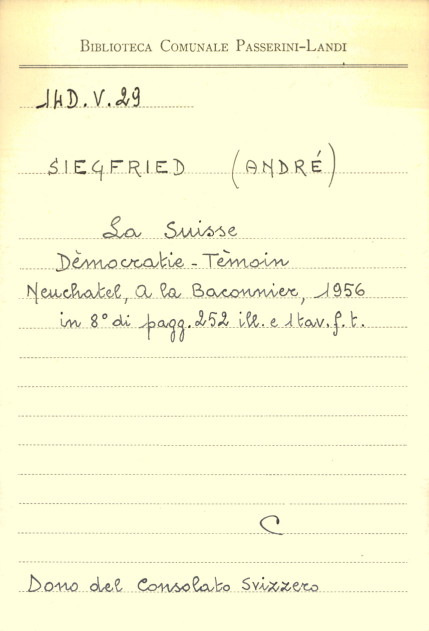 BIBLIOTECA COMUNALE PASSERINI-LANDI
14D.V.29
SIEGFRIED (ANDRÉ)
La Suisse
Dèmocratie - Tèmoin
Neuchatel, A la Baconnier, 1956
in 8° di pagg. 252 ill. e 1 tav. f. t.
C
Dono del Consolato Svizzero